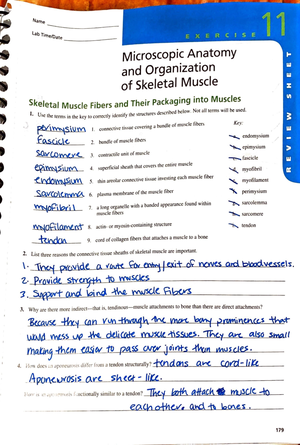 Name
Lab Time/Date
EXERCISE
11
REVIEW SHEET
Microscopic Anatomy
and Organization
of Skeletal Muscle
Skeletal Muscle Fibers and Their Packaging into Muscles
1. Use the terms in the key to correctly identify the structures described below. Not all terms will be used.
Key:
perimysium 1. connective tissue covering a bundle of muscle fibers
fascicle 2. bundle of muscle fibers
sarcomere 3. contractile unit of muscle
epimysium 4. superficial sheath that covers the entire muscle
endomysium 5. thin areolar connective tissue investing each muscle fiber
sarcolemma 6. plasma membrane of the muscle fiber
myofibril 7. a long organelle with a banded appearance found within
muscle fibers
myofilament 8. actin- or myosin-containing structure
tendon 9. cord of collagen fibers that attaches a muscle to a bone
endomysium
epimysium
fascicle
myofibril
myofilament
perimysium
sarcolemma
sarcomere
tendon
2. List three reasons the connective tissue sheaths of skeletal muscle are important.
1. They provide a route for entry/exit of nerves and blood vessels.
2. Provide strength to muscles
3. Support and bind the muscle fibers
3. Why are there more indirect—that is, tendinous—muscle attachments to bone than there are direct attachments?
Because they can run through the more bony prominences that
would mess up the delicate muscle tissues. They are also small
making them easier to pass over joints than muscles.
4. How does an aponeurosis differ from a tendon structurally? tendons are cord-like
Aponeurosis are sheet-like.
functionally similar to a tendon? They both attach muscle to
each other and to bones.
179